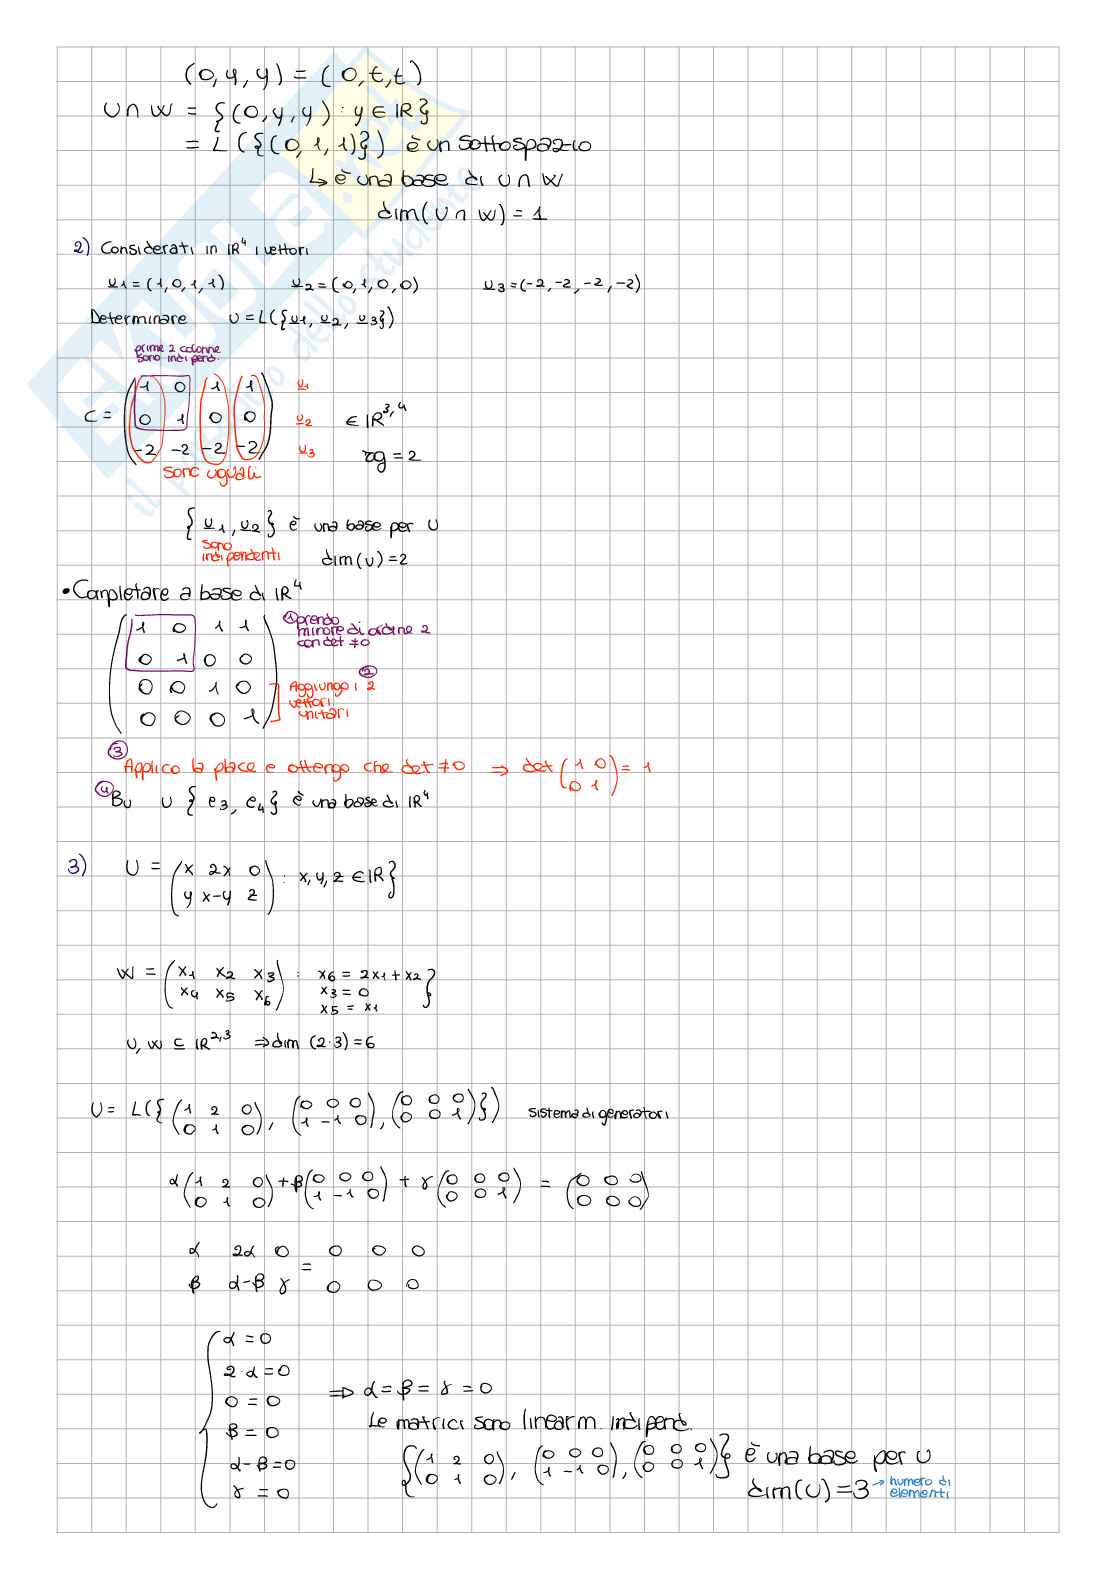 (0,y,y) = (0,t,t)
U∩W = {(0,y,y) : y∈IR}
= L({(0,1,1)}) è un sottospazio
↳ è una base di U∩W
dim(U∩W) = 1
2) Considerati in IR⁴ i vettori
u1=(1,0,1,1) u2=(0,1,0,0) u3=(-2,-2,-2,-2)
Determinare U=L({u1, u2, u3})
prime 2 colonne
sono indipend.
1 0 1 1 u1
C = 0 1 0 0 u2 ∈ IR³,⁴
-2 -2 -2 -2 u3 rg = 2
sono uguali
{u1, u2} è una base per U
sono
indipendenti dim(U)=2
•Completare a base di IR⁴
1 0 1 1 ① prendo
minore di ordine 2
con det ≠0
0 1 0 0
②
0 0 1 0 Aggiungo i 2
vettori
unitari
0 0 0 1
③
Applico la place e ottengo che det ≠0 ⇒ det (1 0
0 1) = 1
④ Bu ∪ {e3, e4} è una base di IR⁴
3) U = (x 2x 0
y x-y z) : x,y,z ∈ IR}
W = (x1 x2 x3
x4 x5 x6) : x6 = 2x1+x2
x3 = 0
x5 = x1 }
U, W ⊆ IR²,³ ⇒ dim (2·3) = 6
U = L({(1 2 0
0 1 0), (0 0 0
1 -1 0), (0 0 0
0 0 1)}) sistema di generatori
α(1 2 0
0 1 0) + β(0 0 0
1 -1 0) + γ(0 0 0
0 0 1) = (0 0 0
0 0 0)
α 2α 0 = 0 0 0
β α-β γ 0 0 0
α = 0
2·α = 0
0 = 0
β = 0
α-β=0
γ = 0
⇒ α = β = γ = 0
Le matrici sono linearm. indipend.
{(1 2 0
0 1 0), (0 0 0
1 -1 0), (0 0 0
0 0 1)} è una base per U
dim(U) = 3 → numero di
elementi